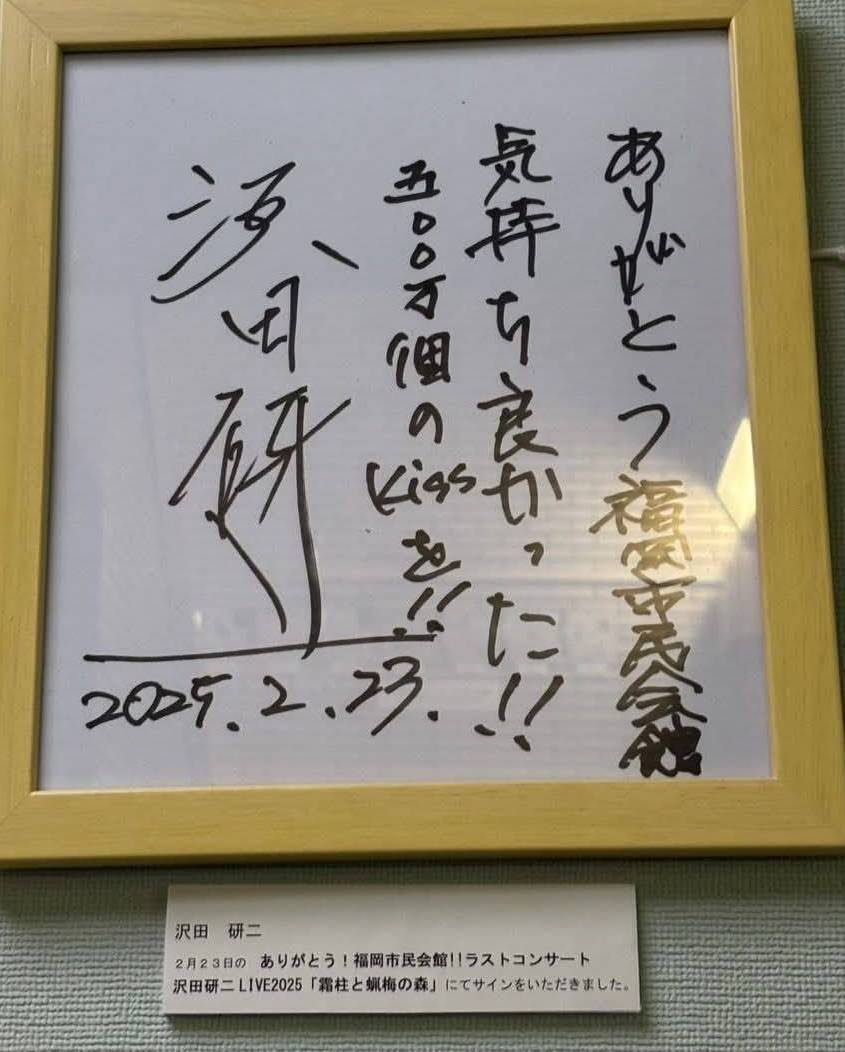 ありがとう福岡市民会館
気持ち良かった!!
五〇〇万個のkissを!!
沢田研二
2025.2.23.
沢田 研二
2月23日の ありがとう!福岡市民会館!!ラストコンサート
沢田研二 LIVE2025「霜柱と蝋梅の森」にてサインをいただきました。